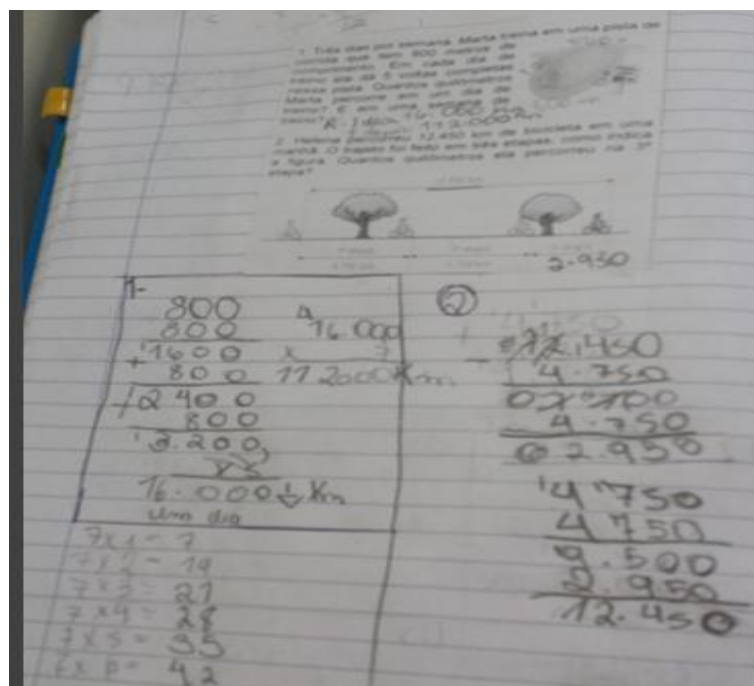 1. Três dias por semana, Marta treina em uma pista de
corrida que tem 800 metros de
comprimento. Em cada dia de
treino ela dá 5 voltas completas
nessa pista. Quantos quilômetros
Marta percorre em um dia de
treino? E em uma semana de
treino?
R. 1 dia 16.000 Km
112.000 Km
2. Helena percorreu 12 450 km de bicicleta em uma
manhã. O trajeto foi feito em três etapas, como indica
a figura. Quantos quilômetros ela percorreu na 3ª
etapa?
2.950
1-
800
800
1600
+ 800
2400
800
3.200
x5
16.000 Km
um dia
4
16.000
x 7
112000 Km
7x1= 7
7x2= 14
7x3= 21
7x4= 28
7x5= 35
7x6= 42
2
12.450
- 4.750
07700
4.750
02.950
4750
4750
9.500
2.950
12.450